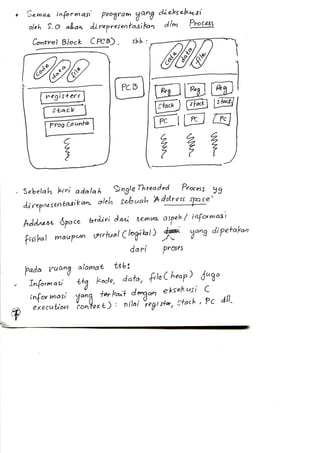 • Semua informasi program yang dieksekusi
oleh S.O akan direpresentasikan dlm Process
Control Block (PCB). sbb :
code data file
code data file
PCB
registers
Reg Reg Reg
stack
stack stack stack
Prog Counter
PC PC PC
- Sebelah kiri adalah Single Threaded Process yg
direpresentasikan oleh sebuah "Address space"
Address Space terdiri dari semua aspek / informasi
fisikal maupun virtual (logikal) yang dipetakan
dari proses
pada ruang alamat tsb:
- Informasi ttg kode, data, file (heap) juga
informasi yang terkait dengan eksekusi (
execution context) : nilai register, stack, PC dll.